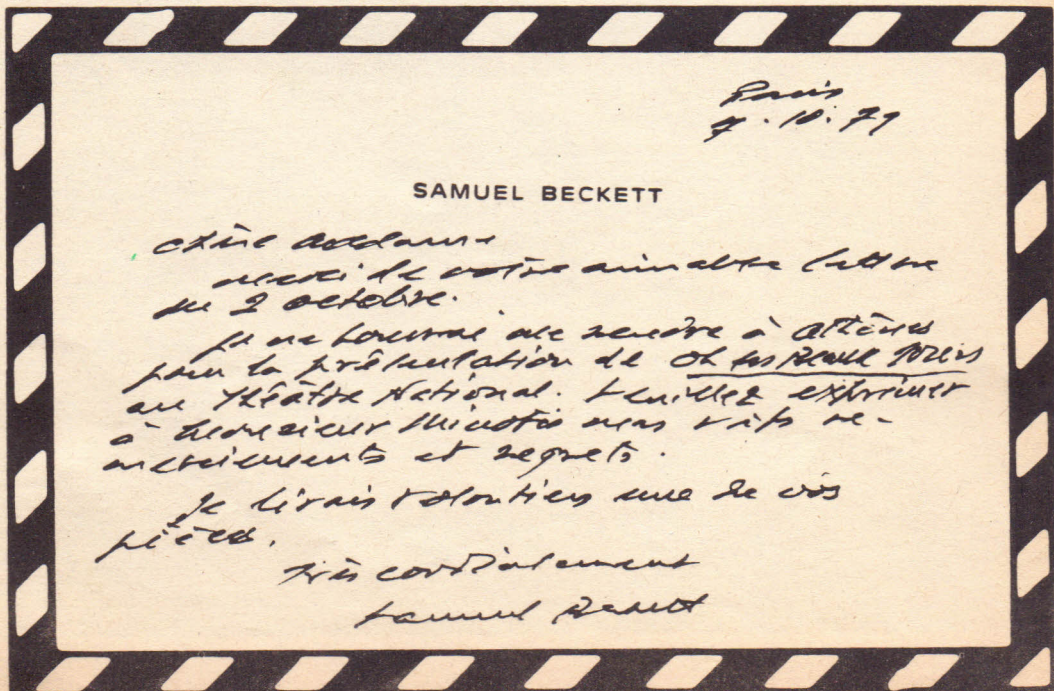 Paris
7.10.79
SAMUEL BECKETT
Chère Madame
merci de votre aimable lettre
du 2 octobre.
Je ne pourrai me rendre à Athènes
pour la présentation de Oh les Beaux Jours
au Théâtre National. Veuillez exprimer
à Monsieur Minotis mes vifs re-
merciements et regrets.
Je lirais volontiers une de vos
pièces.
Très cordialement
Samuel Beckett